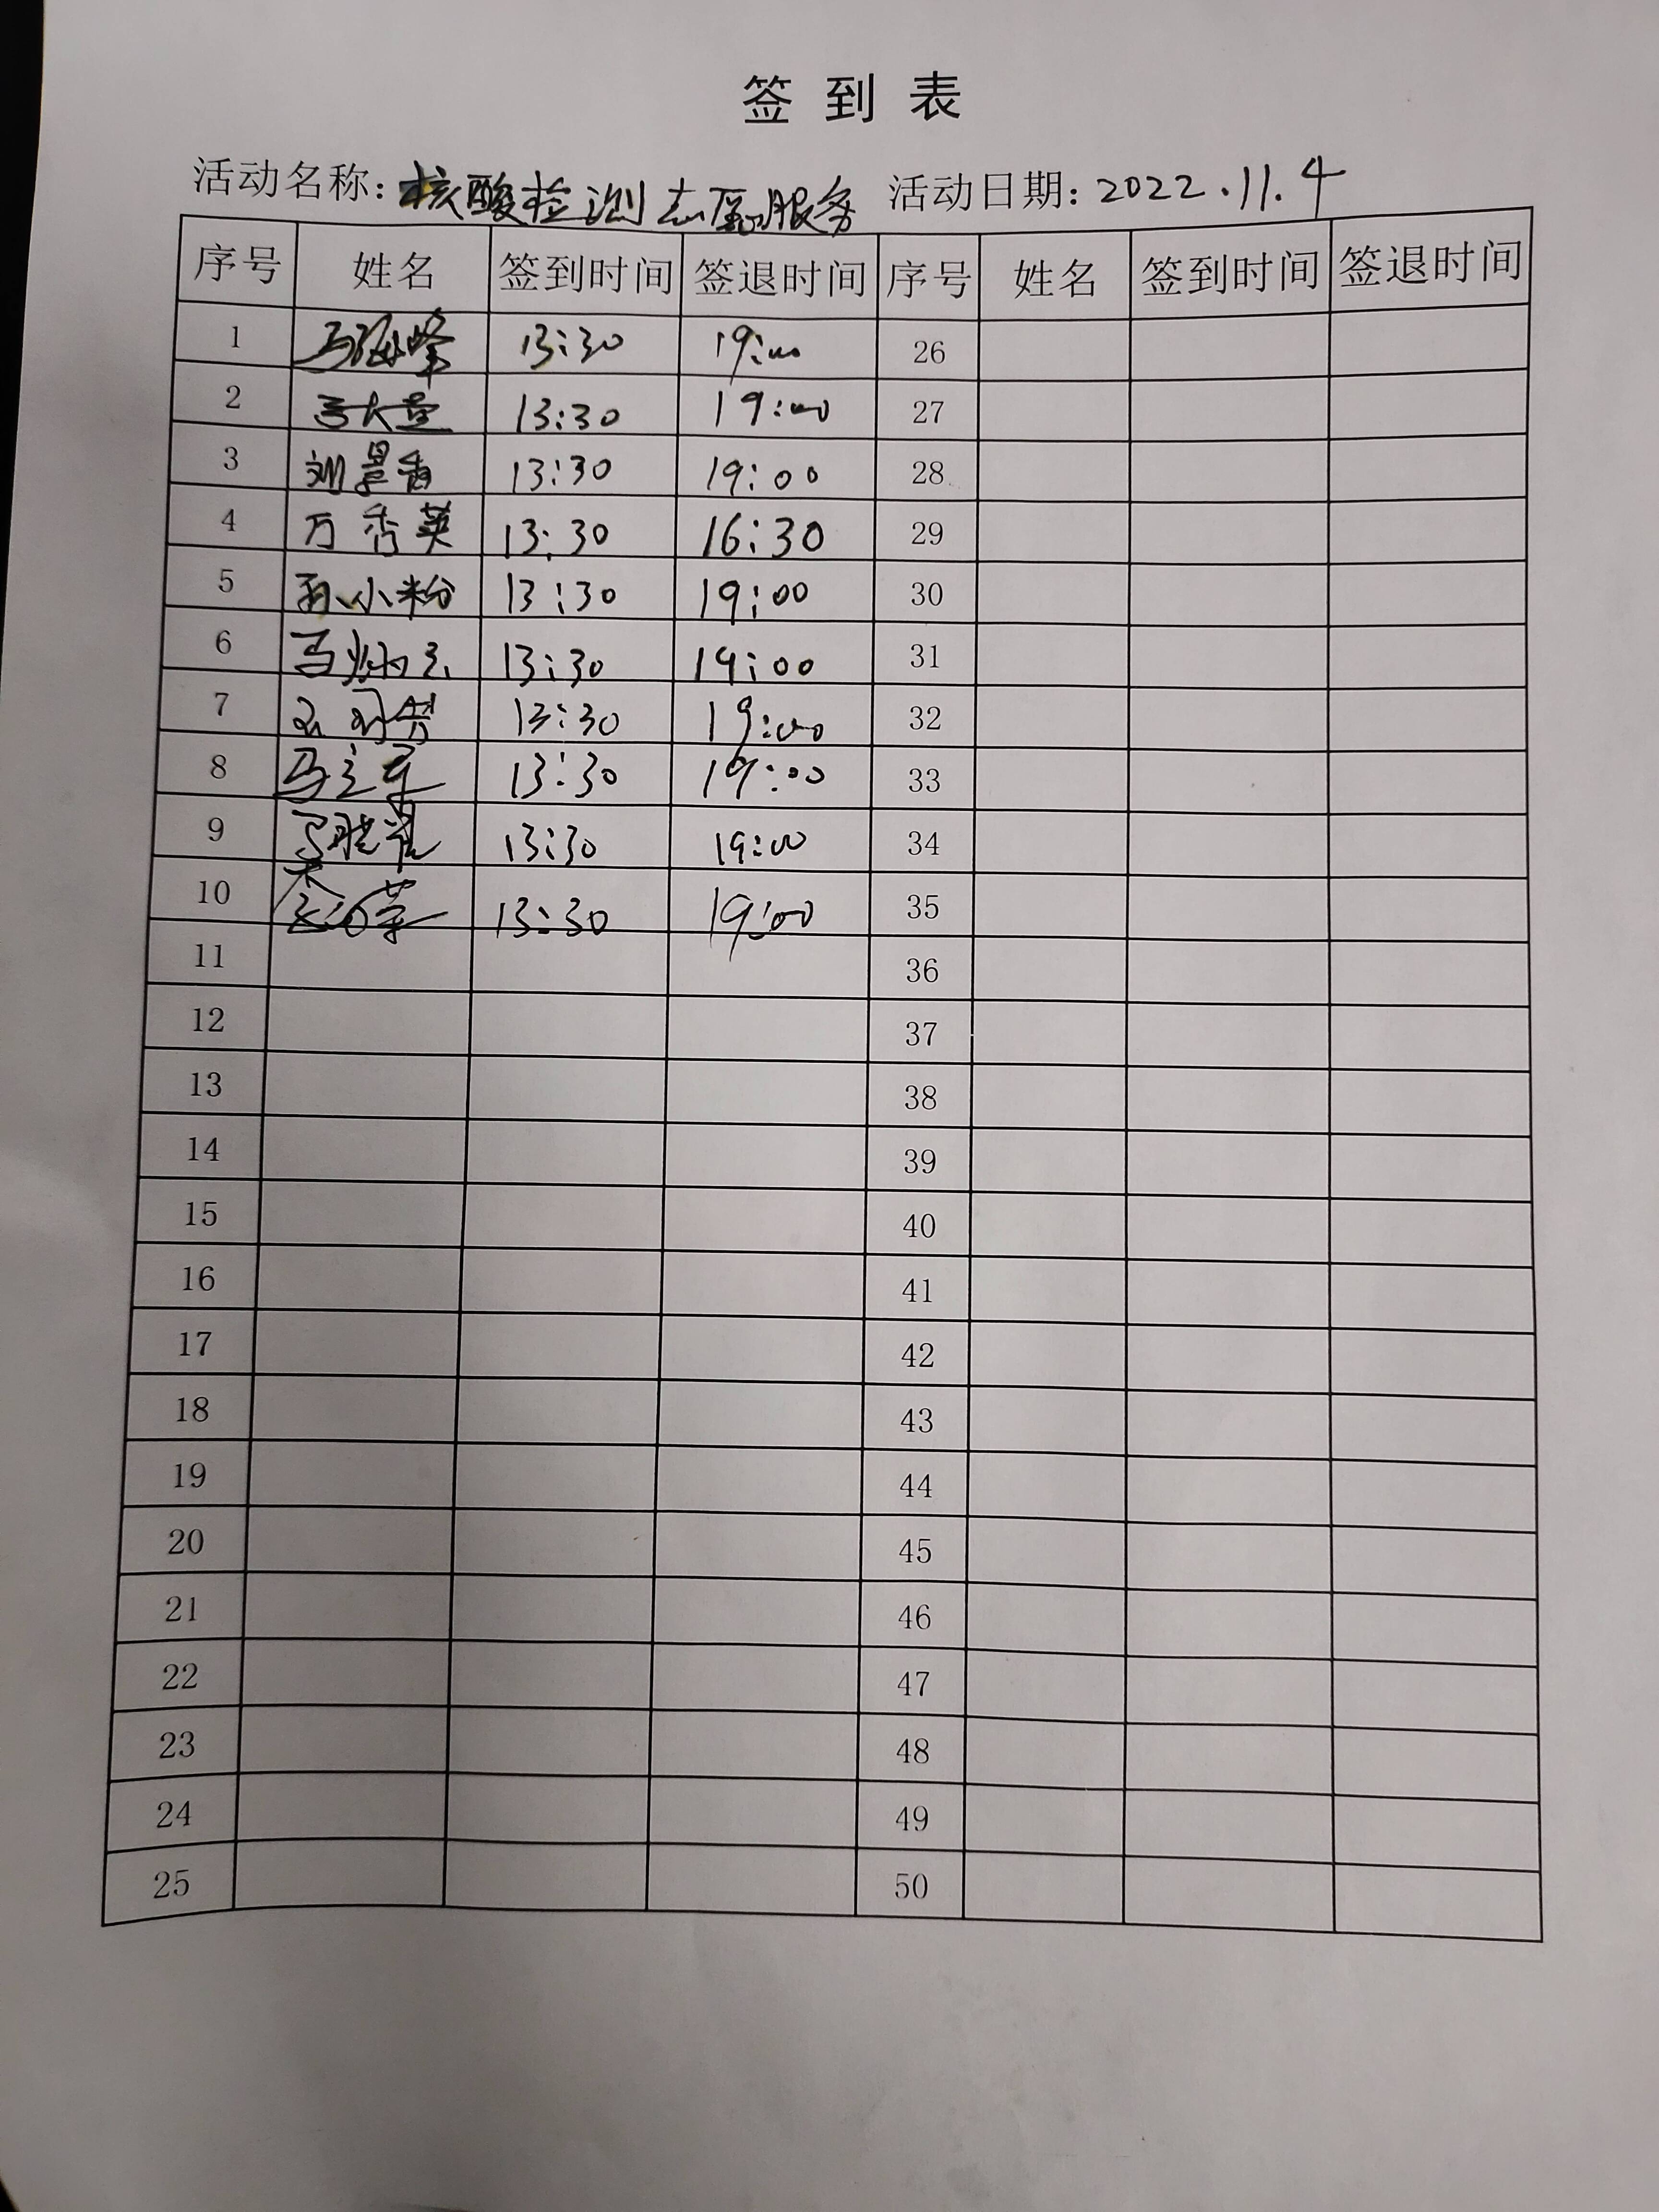 签到表
活动名称：核酸检测志愿服务 活动日期：2022.11.4
序号 姓名 签到时间 签退时间 序号 姓名 签到时间 签退时间
1 马海峰 13:30 19:00 26
2 13:30 19:00 27
3 刘景香 13:30 19:00 28
4 万秀英 13:30 16:30 29
5 孙小粉 13:30 19:00 30
6 13:30 19:00 31
7 13:30 19:00 32
8 马立军 13:30 19:00 33
9 13:30 19:00 34
10 13:30 19:00 35
11 36
12 37
13 38
14 39
15 40
16 41
17 42
18 43
19 44
20 45
21 46
22 47
23 48
24 49
25 50